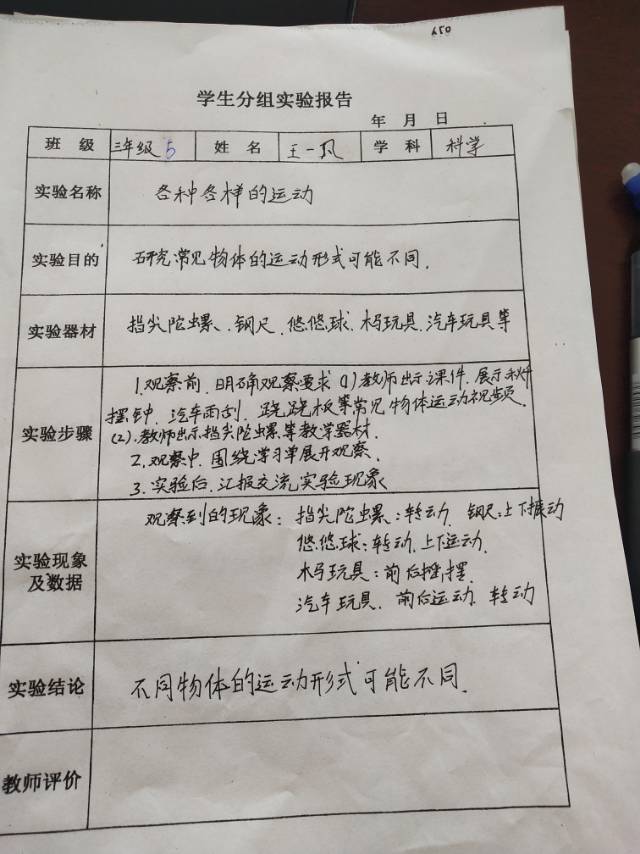 学生分组实验报告
年 月 日
班 级 三年级 5 姓 名 王一凤 学 科 科学
实验名称 各种各样的运动
实验目的 研究常见物体的运动形式可能不同.
实验器材 指尖陀螺、钢尺、悠悠球、木马玩具、汽车玩具等
实验步骤
1.观察前,明确观察要求(1)教师出示课件,展示秋千
摆钟、汽车雨刮、跷跷板等常见物体运动视频
(2).教师出示指尖陀螺等教学器材.
2.观察中,围绕学习单展开观察.
3.实验后,汇报交流实验现象
实验现象
及数据
观察到的现象:指尖陀螺:转动、钢尺:上下振动
悠悠球:转动、上下运动.
木马玩具:前后摆
汽车玩具、前后运动、转动
实验结论 不同物体的运动形式可能不同.
教师评价